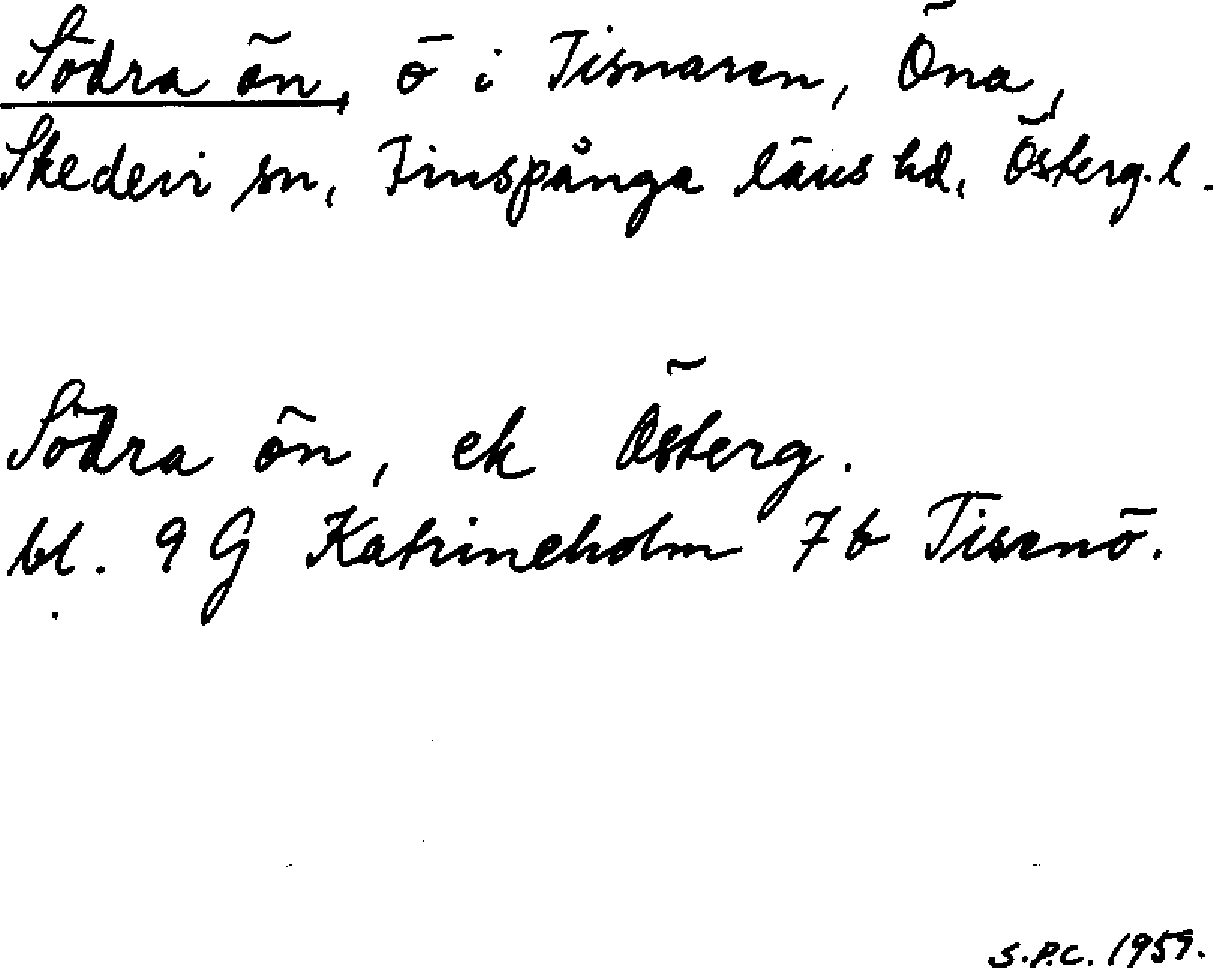 Södra ön, ö i Tisnaren, Öna,
Skedevi sn, Finspånga läns hd, Österg. l.
Södra ön, ek Österg.
bl. 9 G Katrineholm 7 b Tisenö.
S.P.C. 1959.